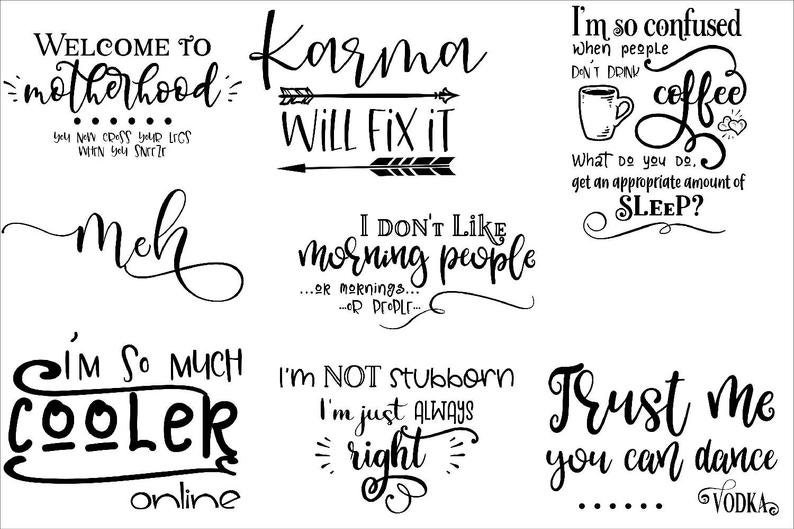 WELCOME TO
motherhood
......
YOU NOW CROSS YOUR LEGS
WHEN YOU SNEEZE
Karma
WILL FIX IT
I'm so confused
when people
DON'T DRINK
coffee
What do you do,
get an appropriate amount of
SLEEP?
Meh
I DON'T LIKE
morning people
...or mornings...
...OR PEOPLE...
I'M SO MUCH
COOLER
online
I'm NOT stubborn
I'm just ALWAYS
right
Trust me
you can dance
......VODKA